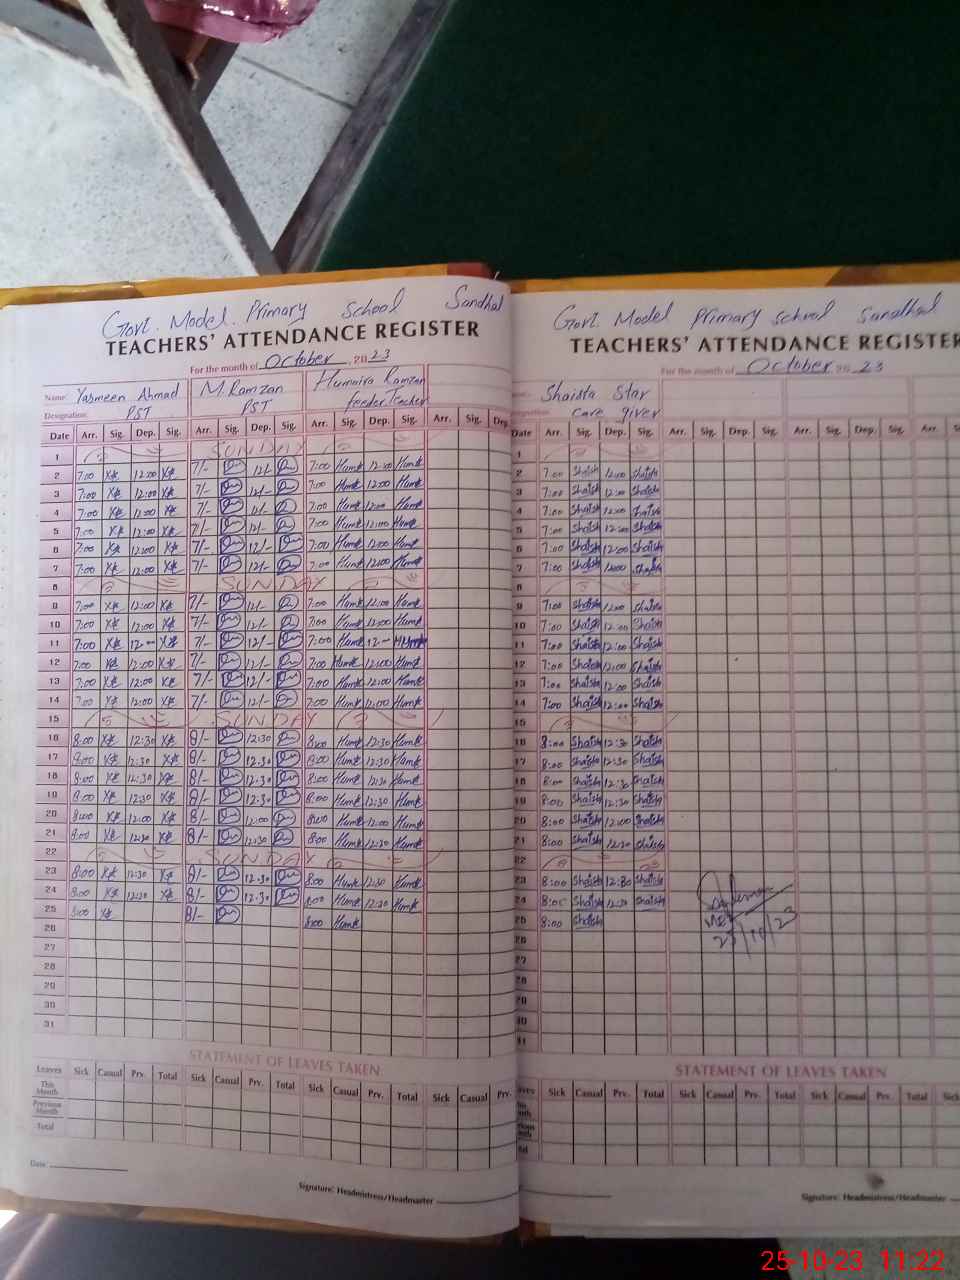 Govt. Model Primary school Sandhal
TEACHERS' ATTENDANCE REGISTER
For the month of October 2023
Name: Yasmeen Ahmad M. Ramzan Humaira Ramzan
Designation: PST PST feeder teacher
Date Arr. Sig. Dep. Sig. Arr. Sig. Dep. Sig. Arr. Sig. Dep. Sig. Arr. Sig. Dep.
1 SUNDAY
2 7:00 12:00 7/- 12/- 7:00 Hum 12:00 Hum
3 7:00 12:00 7/- 12/- 7:00 Hum 12:00 Hum
4 7:00 12:00 7/- 12/- 7:00 Hum 12:00 Hum
5 7:00 12:00 7/- 12/- 7:00 Hum 12:00 Hum
6 7:00 12:00 7/- 12/- 7:00 Hum 12:00 Hum
7 7:00 12:00 7/- 12/- 7:00 Hum 12:00 Hum
8 SUNDAY
9 7:00 12:00 7/- 12/- 7:00 Hum 12:00 Hum
10 7:00 12:00 7/- 12/- 7:00 Hum 12:00 Hum
11 7:00 12- 7/- 12/- 7:00 Hum 12-
12 7:00 12:00 7/- 12/- 7:00 Hum 12:00 Hum
13 7:00 12:00 7/- 12/- 7:00 Hum 12:00 Hum
14 7:00 12:00 7/- 12/- 7:00 Hum 12:00 Hum
15 SUNDAY
16 8:00 12:30 8/- 12:30 8:00 Hum 12:30 Hum
17 8:00 12:30 8/- 12:30 8:00 Hum 12:30 Hum
18 8:00 12:30 8/- 12:30 8:00 Hum 12:30 Hum
19 8:00 12:30 8/- 12:30 8:00 Hum 12:30 Hum
20 8:00 12:00 8/- 12:00 8:00 Hum 12:00 Hum
21 8:00 12:30 8/- 12:30 8:00 Hum 12:30 Hum
22 SUNDAY
23 8:00 12:30 8/- 12:30 8:00 Hum 12:30 Hum
24 8:00 12:30 8/- 12:30 8:00 Hum 12:30 Hum
25 8:00 8/- 8:00 Hum
26
27
28
29
30
31
STATEMENT OF LEAVES TAKEN
Leaves Sick Casual Prv. Total Sick Casual Prv. Total Sick Casual Prv. Total Sick Casual Prv.
This Month
Previous Month
Total
Date:
Signature: Headmistress/Headmaster
Govt. Model Primary school Sandhal
TEACHERS' ATTENDANCE REGISTER
For the month of October 2023
Shaista Star
care giver
Date Arr. Sig. Dep. Sig. Arr. Sig. Dep. Sig. Arr. Sig. Dep. Sig. Arr.
1
2 7:00 Shaista 12:00 Shaista
3 7:00 Shaista 12:00 Shaista
4 7:00 Shaista 12:00 Shaista
5 7:00 Shaista 12:00 Shaista
6 7:00 Shaista 12:00 Shaista
7 7:00 Shaista 12:00 Shaista
8
9 7:00 Shaista 12:00 Shaista
10 7:00 Shaista 12:00 Shaista
11 7:00 Shaista 12:00 Shaista
12 7:00 Shaista 12:00 Shaista
13 7:00 Shaista 12:00 Shaista
14 7:00 Shaista 12:00 Shaista
15
16 8:00 Shaista 12:30 Shaista
17 8:00 Shaista 12:30 Shaista
18 8:00 Shaista 12:30 Shaista
19 8:00 Shaista 12:30 Shaista
20 8:00 Shaista 12:00 Shaista
21 8:00 Shaista 12:30 Shaista
22
23 8:00 Shaista 12:30 Shaista
24 8:00 Shaista 12:30 Shaista
25 8:00 Shaista
25/10/23
26
27
28
29
30
31
STATEMENT OF LEAVES TAKEN
Sick Casual Prv. Total Sick Casual Prv. Total Sick Casual Prv. Total
Signature: Headmistress/Headmaster
25-10-23 11:22